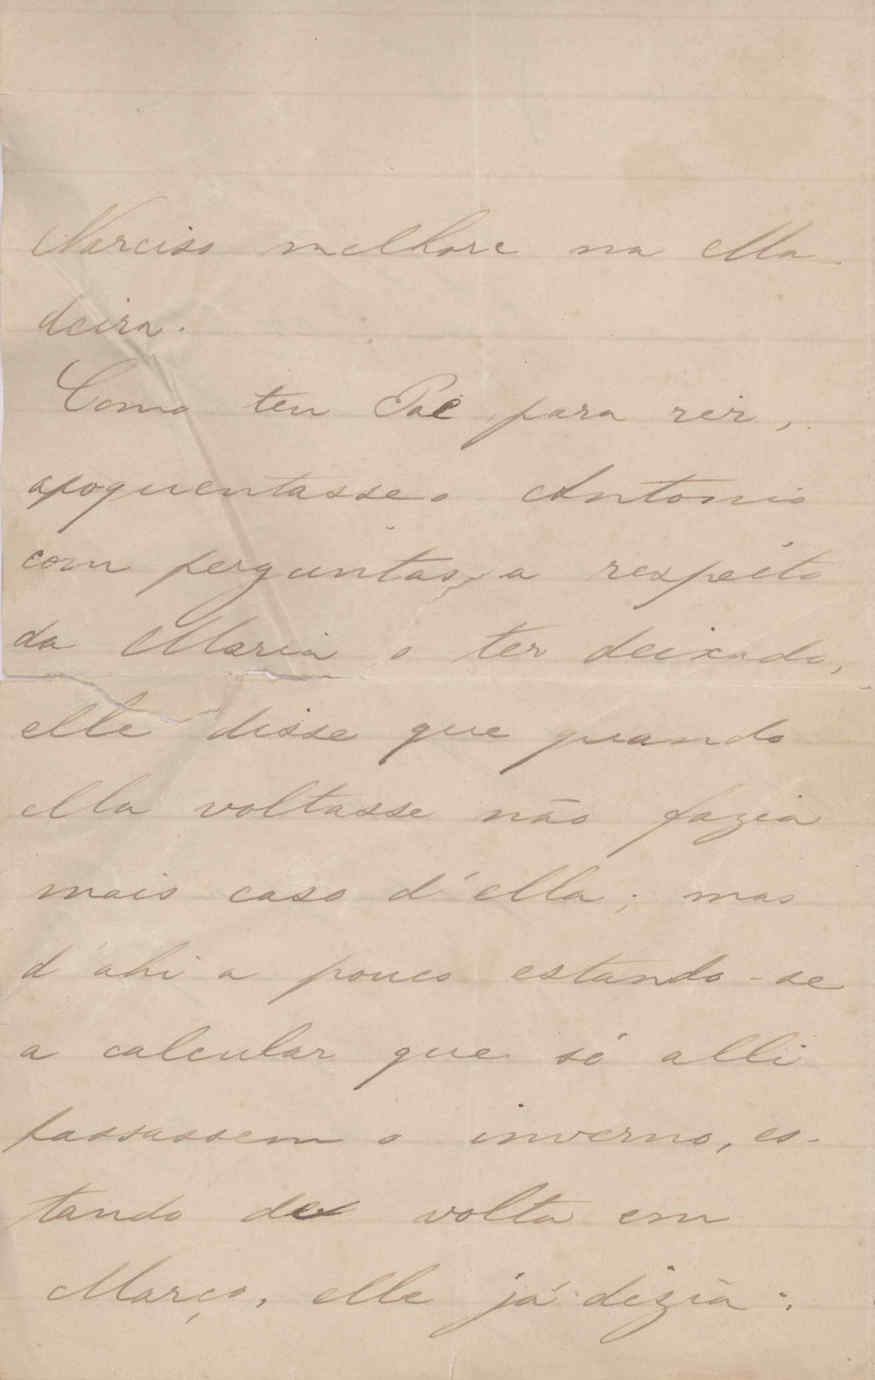 Narciso melhore na Ma-
deira.
Como teu Pae para rir,
apoquentasse o Antonio
com perguntas, a respeito
da Maria o ter deixado,
elle disse que quando
ella voltasse não fazia
mais caso d'ella; mas
d'ahi a pouco estando-se
a calcular que só alli
passassem o inverno, es-
tando de volta em
Março, elle já dizia: